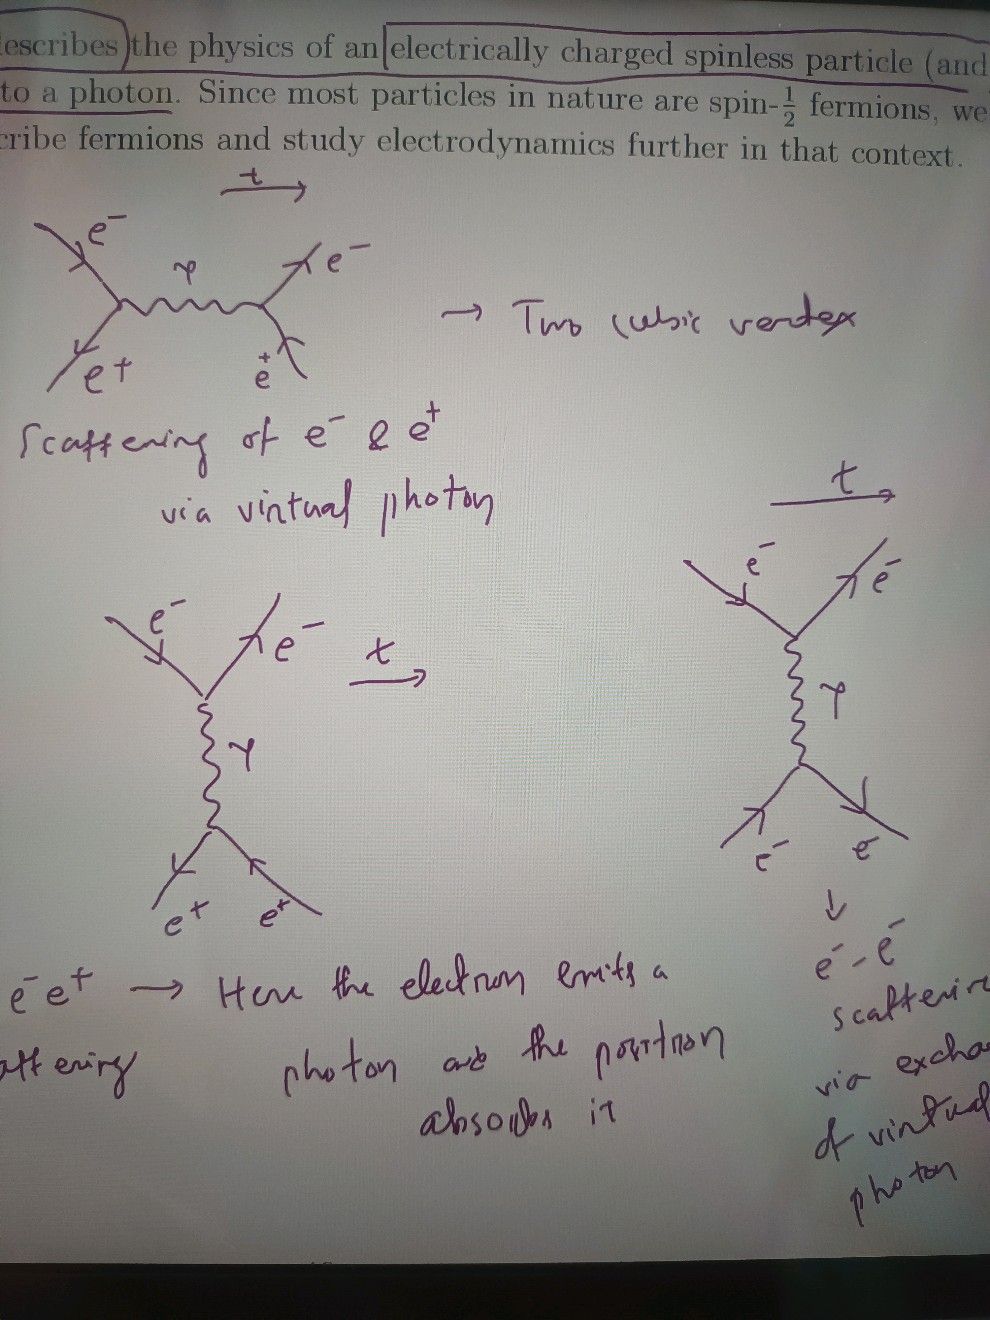 escribes) the physics of an electrically charged spinless particle (and
to a photon. Since most particles in nature are spin-½ fermions, we
cribe fermions and study electrodynamics further in that context.
t
e⁻
γ
e⁻
→ Two cubic vertex
e⁺
e⁺
Scattering of e⁻ & e⁺
via virtual photon
t
e⁻
e⁻
γ
e⁻
e⁻
↓
e⁻-e⁻
scatterin
via excha
of virtual
photon
e⁻
e⁻
t
γ
e⁺
e⁺
e⁻e⁺ → Here the electron emits a
attering photon and the positron
absorbs it